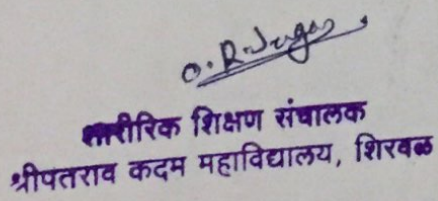 O.R.
शारीरिक शिक्षण संचालक
श्रीपतराव कदम महाविद्यालय, शिरवळ